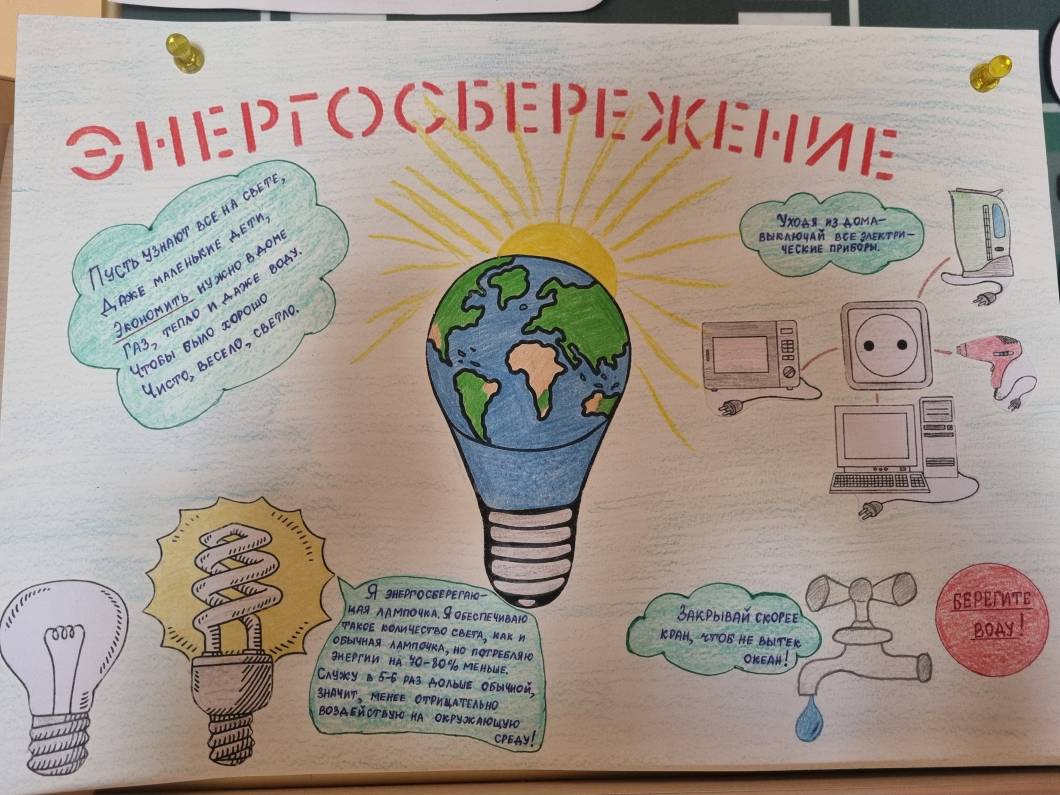 ЭНЕРГОСБЕРЕЖЕНИЕ
Пусть узнают все на свете,
Даже маленькие дети,
Экономить нужно в доме
Газ, тепло и даже воду.
Чтобы было хорошо
Чисто, весело, светло.
Уходя из дома-
выключай все электри-
ческие приборы.
Я энергосберегаю-
щая лампочка. Я обеспечиваю
такое количество света, как и
обычная лампочка, но потребляю
энергии на 40-80% меньше.
Служу в 5-6 раз дольше обычной,
значит, менее отрицательно
воздействую на окружающую
среду!
Закрывай скорее
кран, чтоб не вытек
океан!
БЕРЕГИТЕ
ВОДУ!